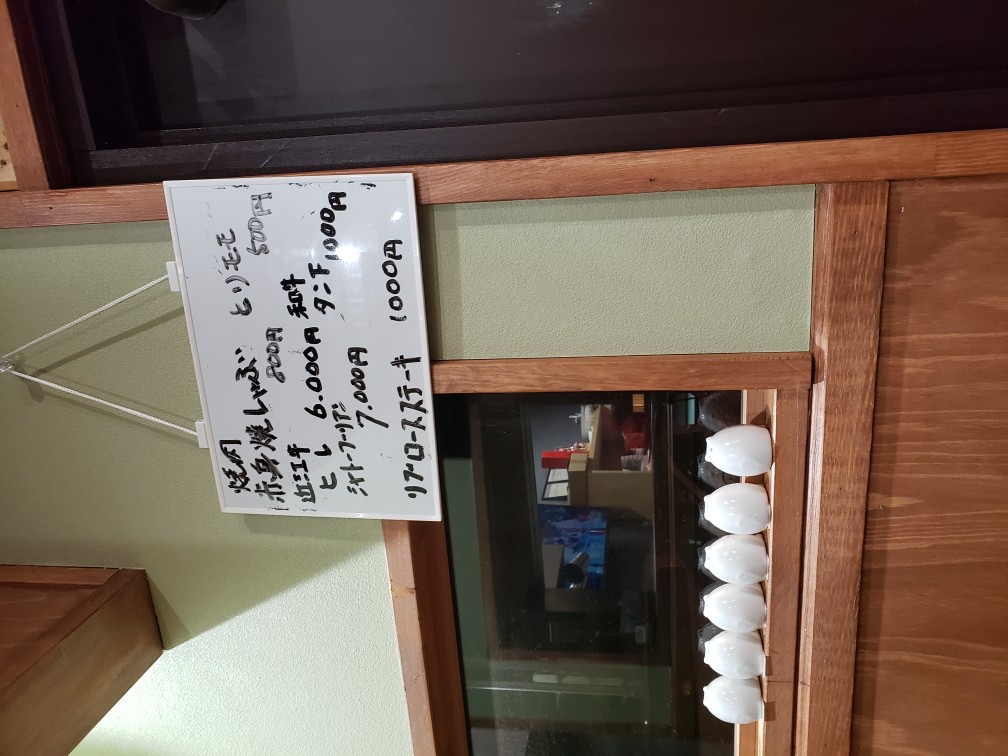 焼肉
赤身焼しゃぶ とりモモ
800円 500円
近江牛 和牛
ヒレ 6.000円 タン下 1000円
シャトーブリアン
7.000円
リブロースステーキ 1000円